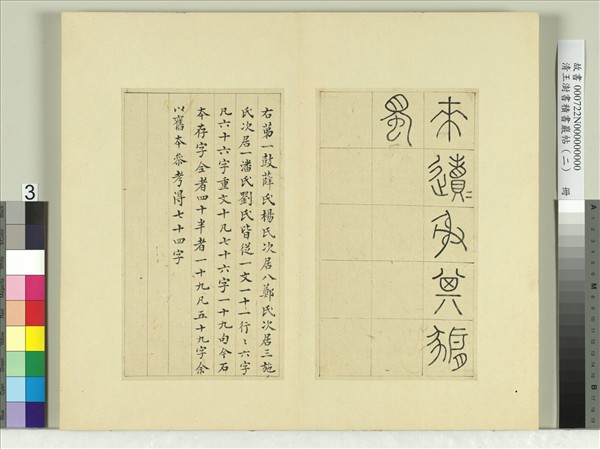 來䢱〻射其
蜀
右第一鼓薛氏楊氏次居八鄭氏次居三施
氏次居一潘氏劉氏皆從一文一十一行〻六字
凡六十六字重文十凡七十六字一十九句今石
本存字全者四十半者一十九凡五十九字余
以舊本叅考得七十四字
故書 000722N000000000 冊
清王澍書積書巖帖(二)
3